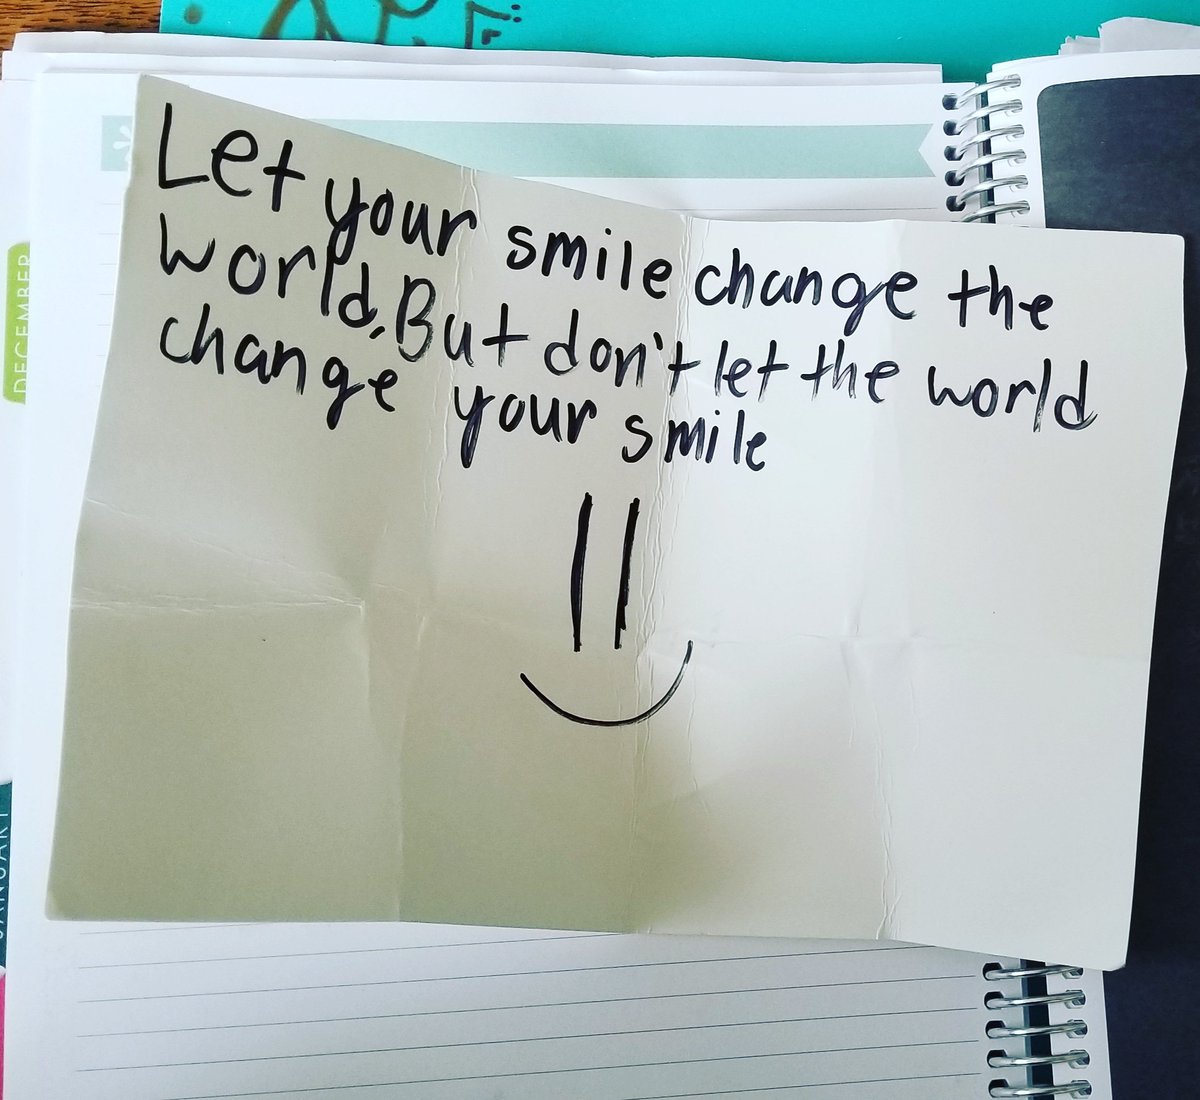 Let your smile change the
world. But don't let the world
change your smile
DECEMBER
JANUARY